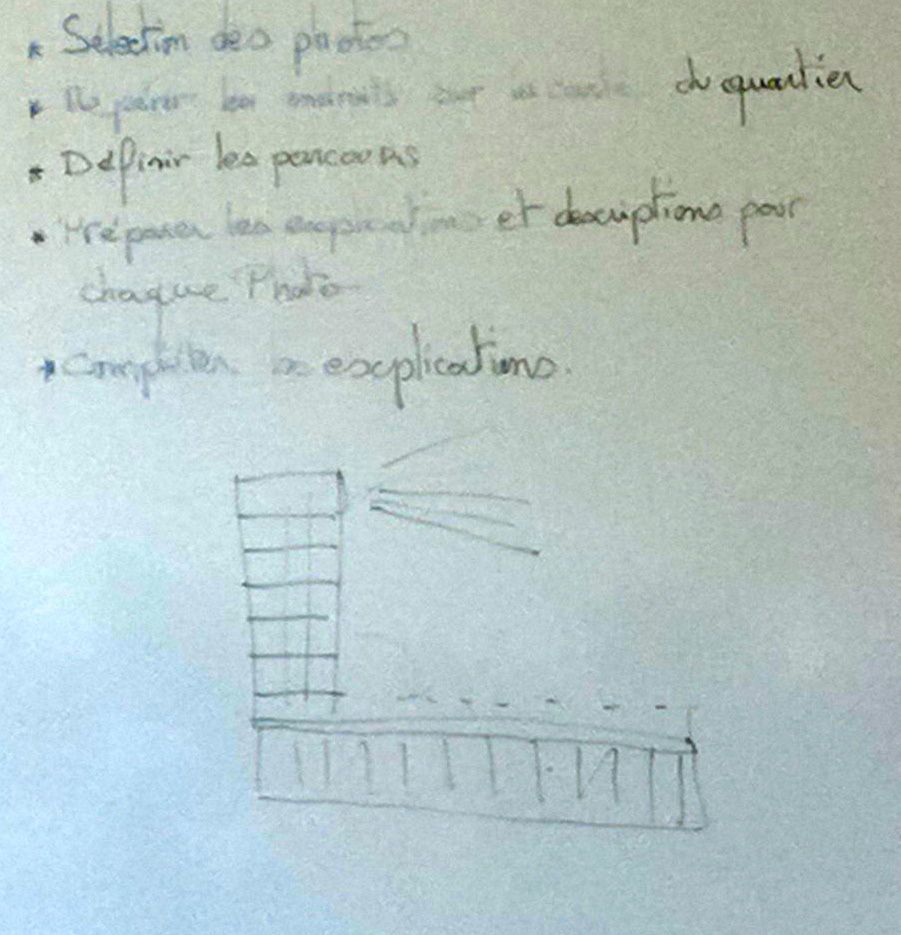 * Sélection des photos
* Repérer les endroits sur la carte du quartier
* Définir les parcours
* Préparer les explications et descriptions pour
chaque Photo
* Compléter les explications.